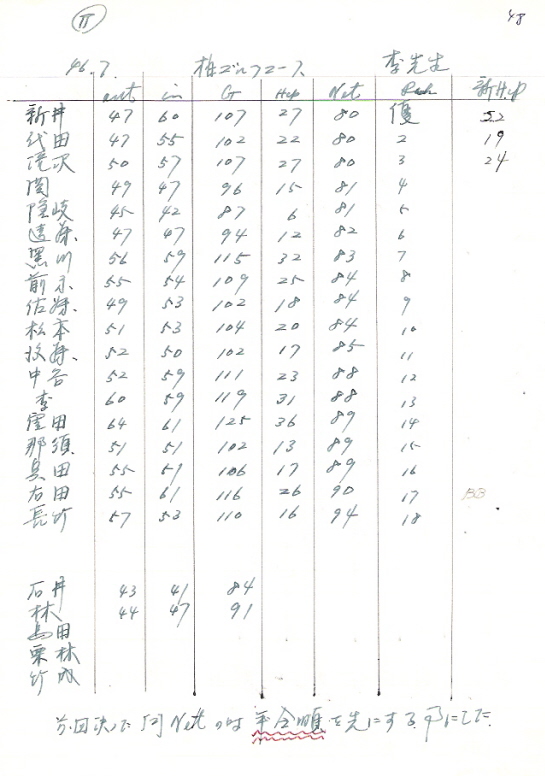 II
48
46.7. 梅ゴルフコース 李先生
out in G Hcp Net Rank 新Hcp
新井 47 60 107 27 80 優 22
代田 47 55 102 22 80 2 19
滝沢 50 57 107 27 80 3 24
関 49 47 96 15 81 4
隠岐 45 42 87 6 81 5
遠藤 47 47 94 12 82 6
黒川 56 59 115 32 83 7
前 55 54 109 25 84 8
佐藤 49 53 102 18 84 9
松本 51 53 104 20 84 10
牧藤 52 50 102 17 85 11
中谷 52 59 111 23 88 12
李 60 59 119 31 88 13
窪田 64 61 125 36 89 14
那須 51 51 102 13 89 15
真田 55 51 106 17 89 16
右田 55 61 116 26 90 17 BB
長竹 57 53 110 16 94 18
石井 43 41 84
林 44 47 91
島田
栗林
竹内
前回決めた 同Netの時 年令順を先にする 事にした